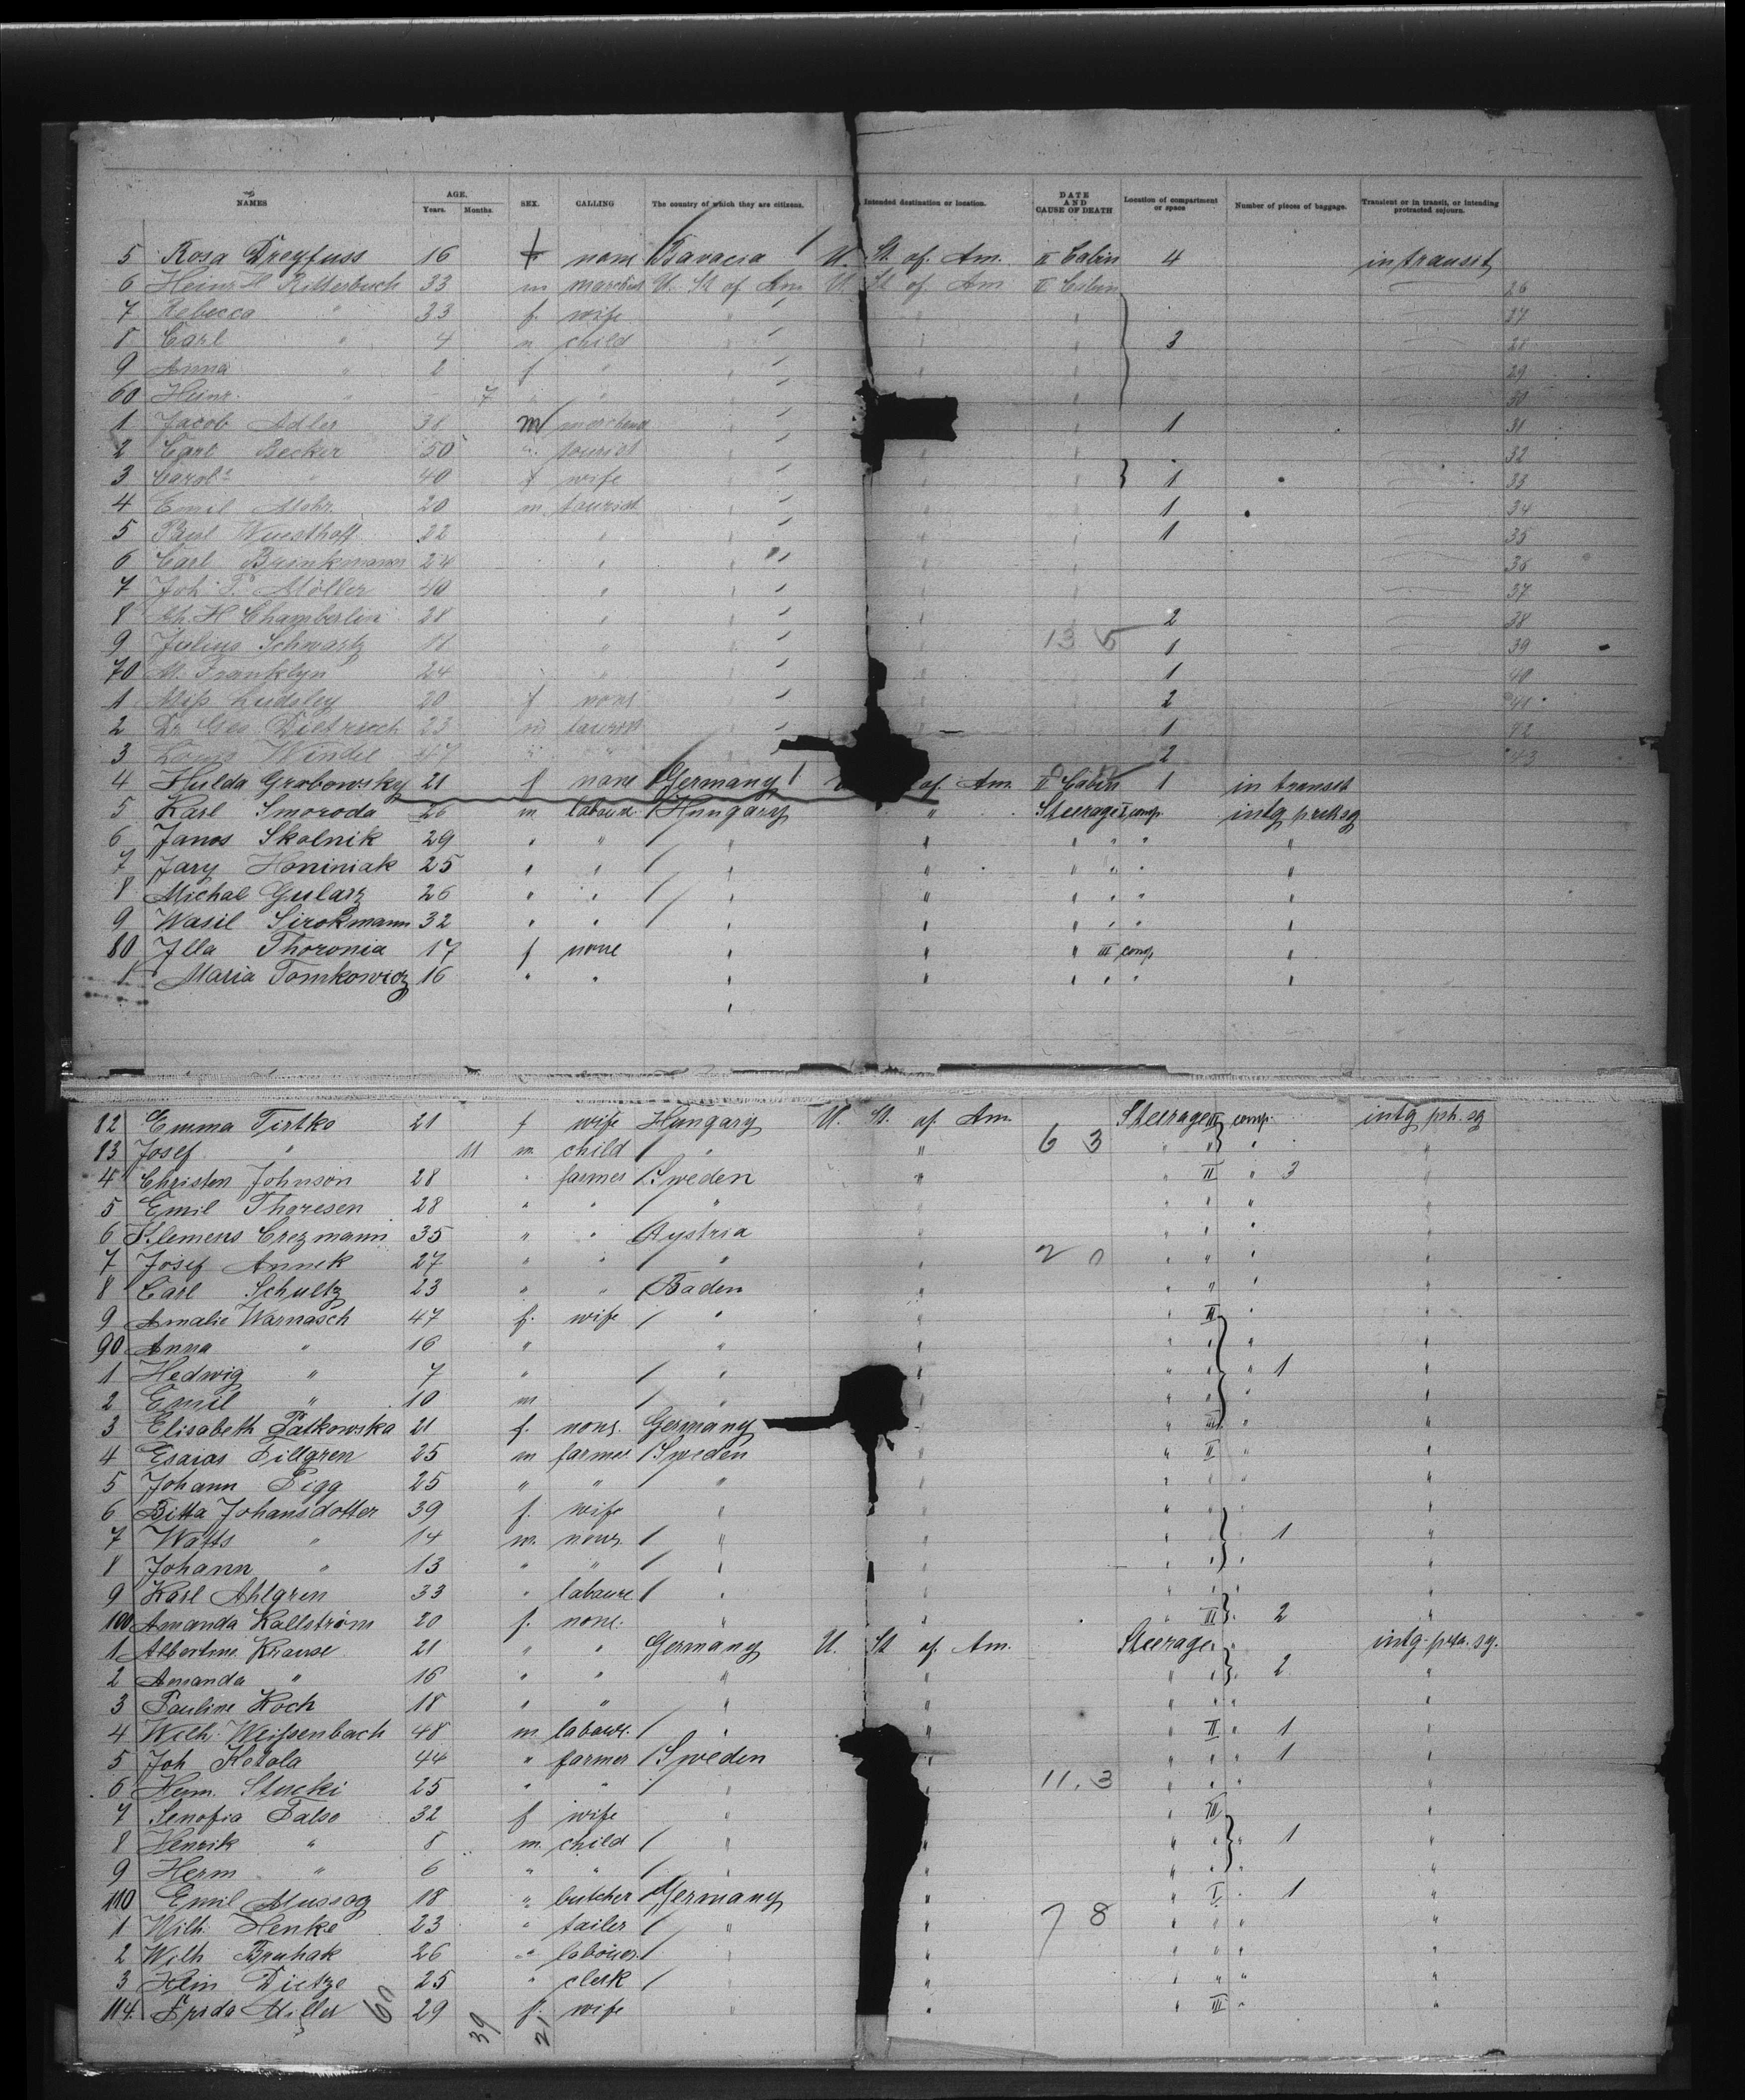 NAMES AGE. Years. Months. SEX. CALLING The country of which they are citizens. Intended destination or location. DATE AND CAUSE OF DEATH Location of compartment or space Number of pieces of baggage. Transient or in transit, or intending protracted sojourn.
5 Rosa Dreyfuss 16 f none Bavaria U. St. of. Am. II Cabin 4 in transit
6 Heinr H Ritterbusch 33 m U. St of Am U. St of Am II Cabin 26
7 Rebecca " 33 f. wife " " " 27
8 Carl " 4 m child " " " 3 28
9 Anna " 2 f " " " " 29
60 Heinr. " 7 " " 30
1 Jacob Adler 38 m " " 1 31
2 Carl Becker 50 " tourist " " " 32
3 Carol. " 40 f wife " " " 1 33
4 Emil Mohr 20 m tourist " " " 1 34
5 Paul Wuesthoff 22 " " " " 1 35
6 Carl Brinkmann 24 " " " " 36
7 Joh. P. Möller 40 " " " " 37
8 Ch. H Chamberlin 28 " " " " 2 38
9 Julius Schwartz " " " 13 5 1 39
70 M. Franklyn 24 " " " 1 40
1 Miss Ludsley 20 f none " " 2 41
2 Dr Geo Dietrich 23 m tourist " 1 42
3 Louis Windel 47 " " 2 43
4 Hulda Grabowsky 21 f none Germany U of. Am. II Cabin 1 in transit
5 Karl Smoroda 26 m labourer Hungary " Steerage I comp. intg prtr sg
6 Janos Skolnik 29 " " " " " " " "
7 Jary Honiniak 25 " " " " " " " "
8 Michal Gularz 26 " " " " " " " "
9 Wasil Sirokmann 32 " " " " " " " "
80 Illa Thoronia 17 f none " " " III comp. "
1 Maria Tomkowicz 16 " " " " " " " "
82 Emma Tirtko 21 f wife Hungary U. St. of. Am. Steerage III comp. intg prtr. sg
83 Josef " 11 m. child " " 6 3 " " " "
4 Christen Johnson 28 " farmer Sweden " " II " 3 "
5 Emil Thoresen 28 " " " " " " " "
6 Klemens Crezmann 35 " " Austria " " " " "
7 Josef Annek 27 " " " " 2 0 " " " "
8 Carl Schultz 23 " " Baden " " " " "
9 Amalie Warnasch 47 f. wife " " " III " "
90 Anna " 16 " " " " " " "
1 Hedwig " 7 " " " " " " 1 "
2 Emil " 10 m " " " " " "
3 Elisabeth Patkowska 21 f. none. Germany " III " "
4 Esaias Tillgren 25 m farmer Sweden " " II " "
5 Johann Pigg 25 " " " " " " "
6 Bitta Johansdotter 39 f. wife " " " " " "
7 Watts " 14 m. none. " " " " 1 "
8 Johann " 13 " " " " " " " "
9 Karl Ahlgren 33 " labourer " " " " " "
100 Amanda Kallström 20 f. none. " " " III " 2 "
1 Albertine Krause 21 " " Germany U. St of. Am. Steerage " " intg. prtr. sg.
2 Amanda " 16 " " " " " " " 2 "
3 Pauline Koch 18 " " " " " " " "
4 Wilh. Weissenbach 48 m. labourer. " " " II " 1 "
5 Joh Kotola 44 " farmer Sweden " " " " 1 "
6 Herm. Stucki 25 " " " " 11.3 " " " "
7 Senofia Palso 32 f wife " " " III "
8 Henrik " 8 m. child " " " " " 1 "
9 Herm " 6 " " " " " " " "
110 Emil Mussog 18 " butcher Germany " " I. " 1 "
1 Wilh. Henke 23 " tailer " " 7 8 " " " "
2 Wilh Bruhak 26 " labourer. " " " " " "
3 Hein Dietze 25 " clerk " " " " " "
114. Frida Miller 29 f. wife " " " III " "
60 39 21